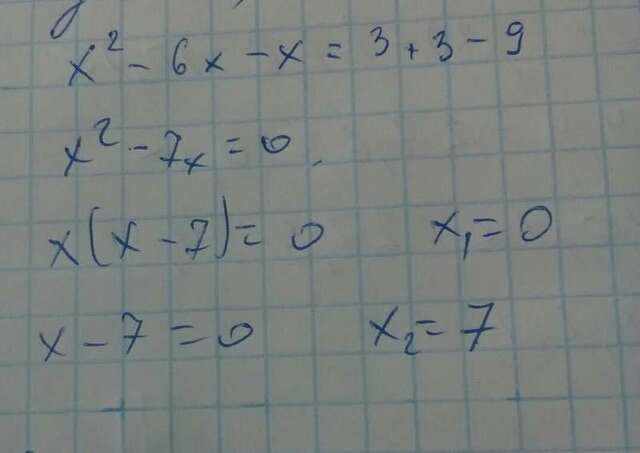 x² - 6x - x = 3 + 3 - 9
x² - 7x = 0
x(x - 7) = 0 x₁ = 0
x - 7 = 0 x₂ = 7